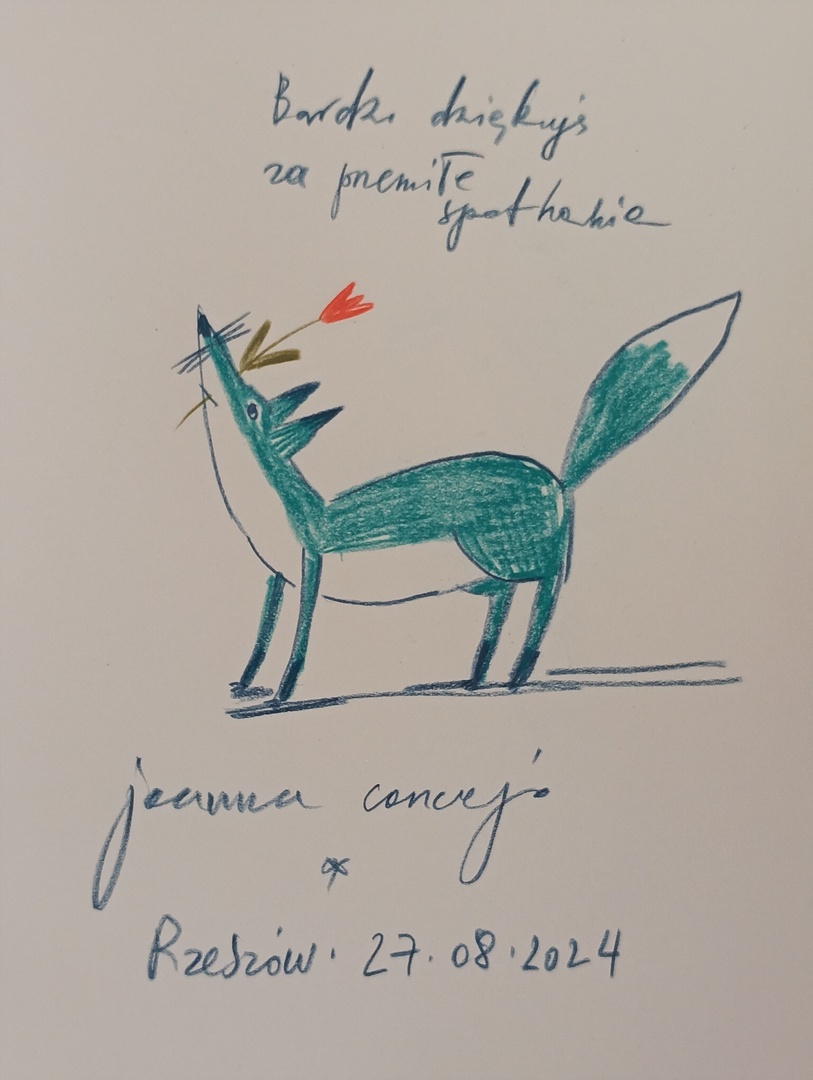 Bardzo dziękuję
za przemiłe
spotkanie
joanna concejo
Rzeszów. 27.08.2024